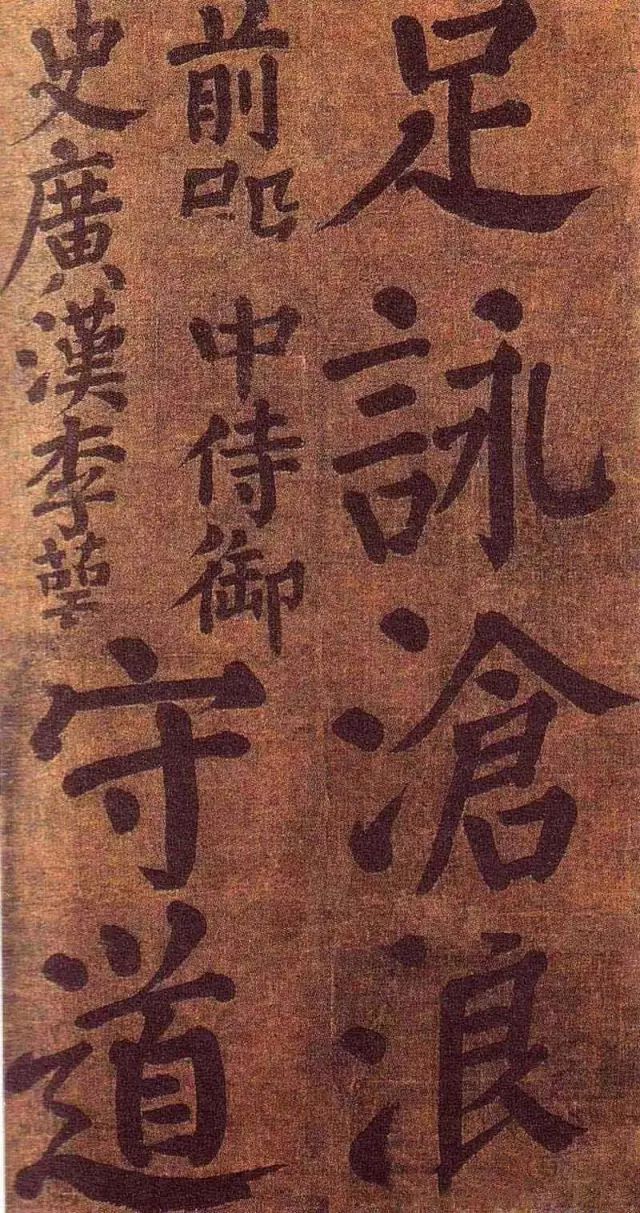 足詠滄浪
前 中侍御
史廣漢李萼
守道